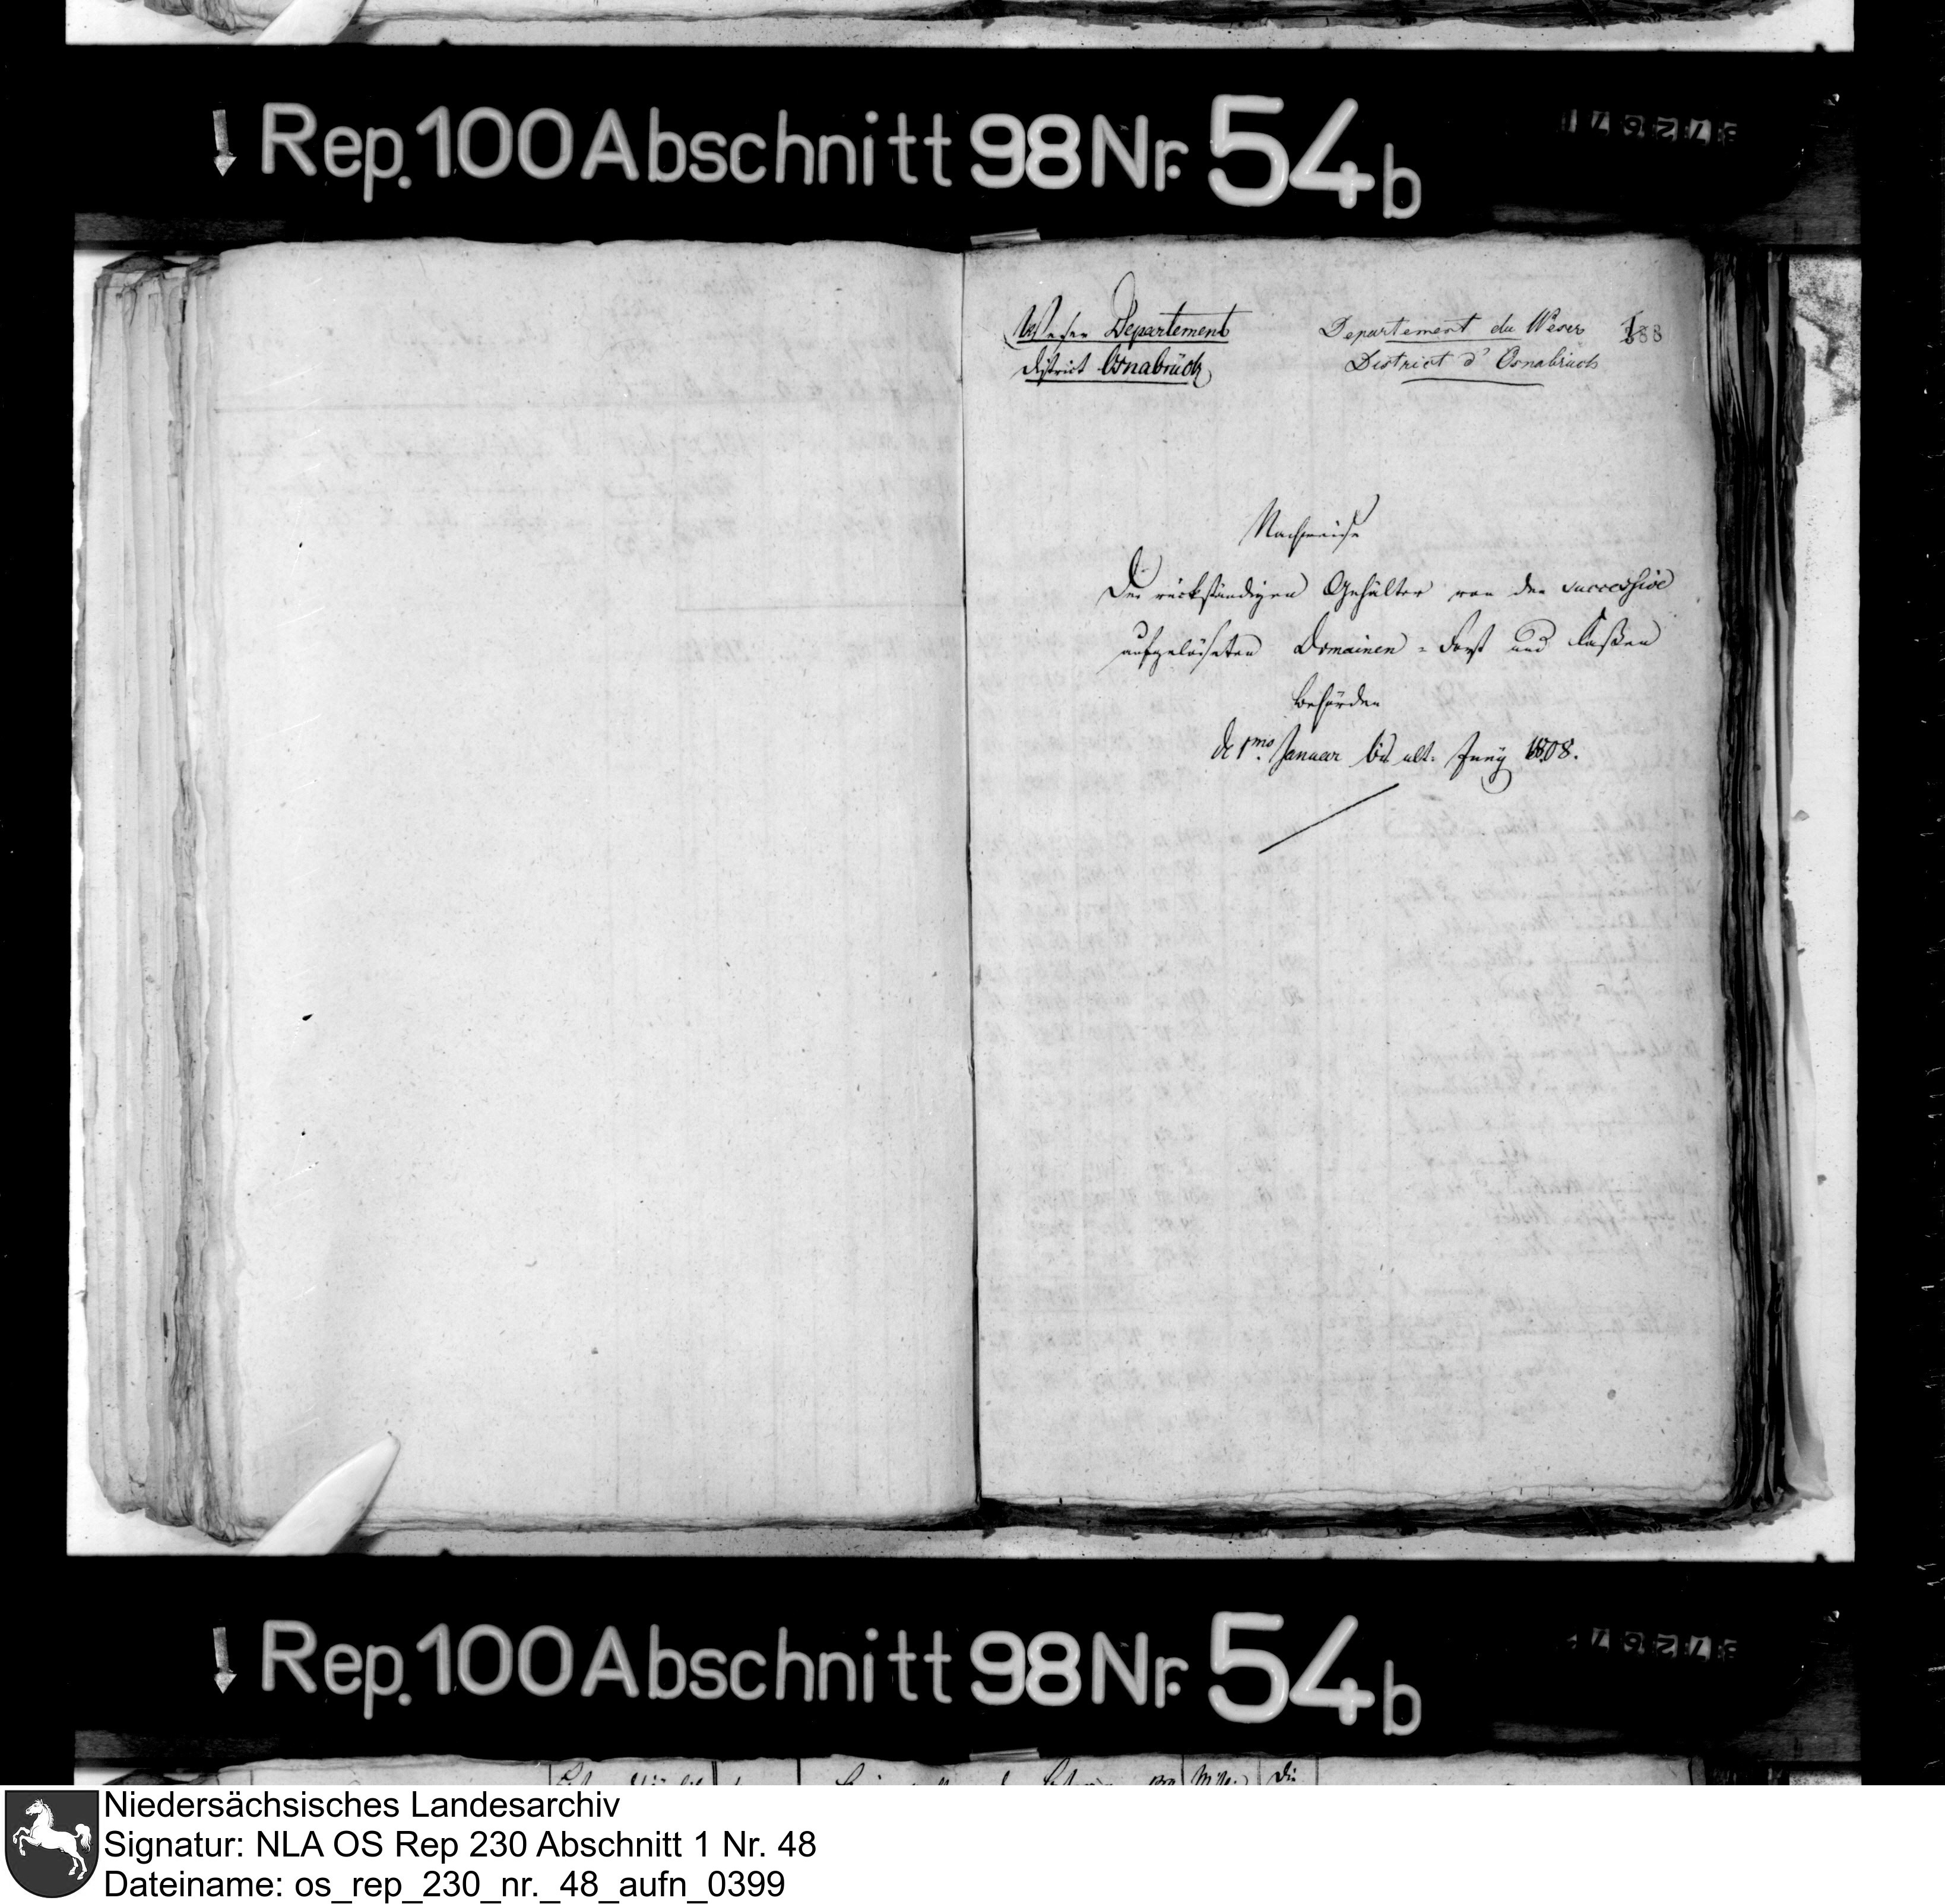 Rep. 100 Abschnitt 98 Nr. 54b
Weser Departement
District Osnabrück
Departement du Weser
District d'Osnabrück
188
Nachweise
Der rückständigen Gehälter von den successive
aufgelöseten Domainen = Forst und Caßen
Behörden
de 1mo Januar bis ult. Juny 1808.
Rep. 100 Abschnitt 98 Nr. 54b
Niedersächsisches Landesarchiv
Signatur: NLA OS Rep 230 Abschnitt 1 Nr. 48
Dateiname: os_rep_230_nr._48_aufn_0399